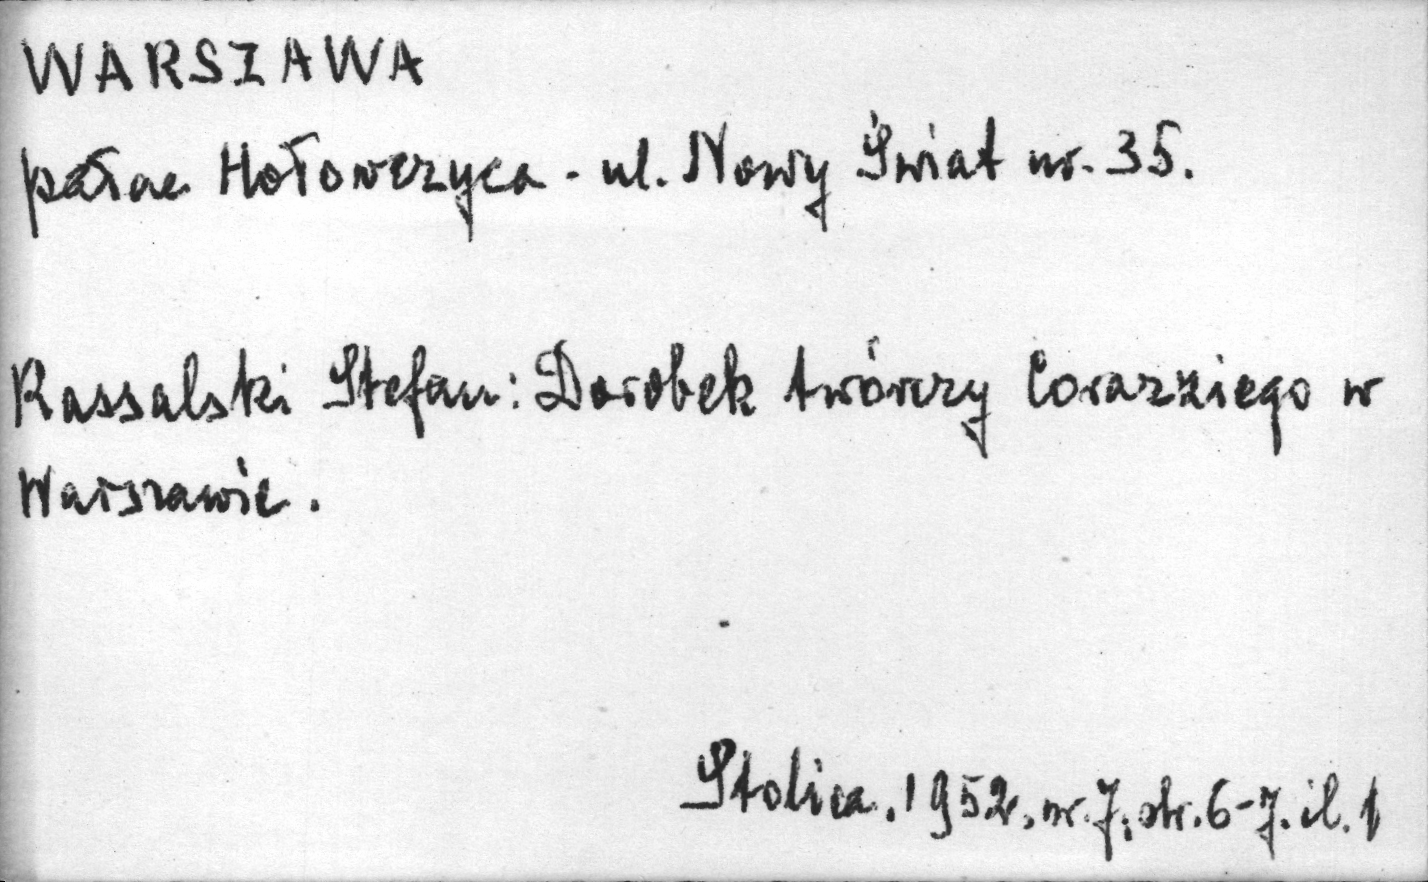 WARSZAWA
pałac Hołowczyca - ul. Nowy Świat nr. 35.
Rassalski Stefan: Dorobek twórczy Corazziego w
Warszawie.
Stolica. 1952r, nr. 7, str. 6-7. il. 1